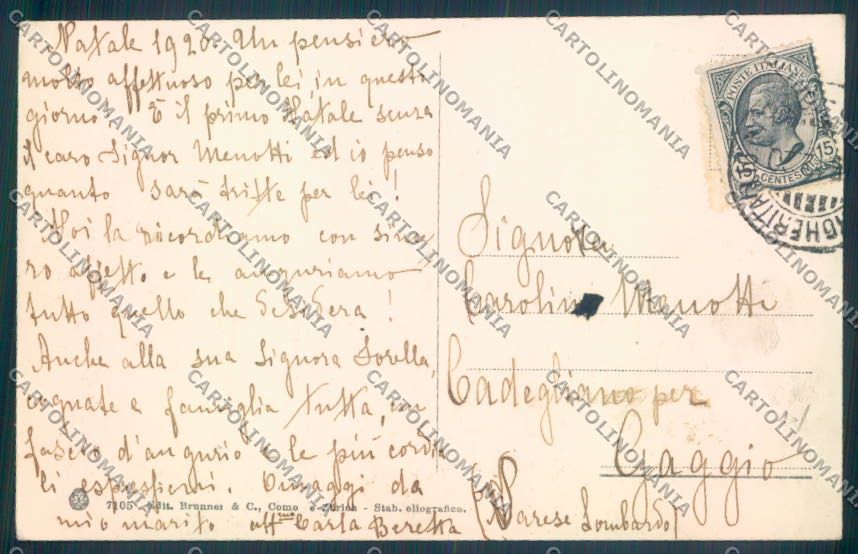 Natale 1920. Un pensiero
molto affettuoso per lei, in questo
giorno. È il primo Natale senza
il caro Signor Menotti ed io penso
quanto sarà triste per lei!
Noi la ricordiamo con since
ro affetto e le auguriamo
tutto quello che desidera!
Anche alla sua Signora Sorella,
cognate e famiglia tutta, un
fascio d'augurio e le più cordia
li espressioni. Omaggi da
mio marito aff.ma Carla Beretta
7105 Edit. Brunner & C., Como e Zürich - Stab. eliografico.
POSTE ITALIANE
15
CENTESIMI
15
Signora
Carolina Menotti
Cadegliano per
Gaggio
(Varese Lombardo)
CARTOLINOMANIA